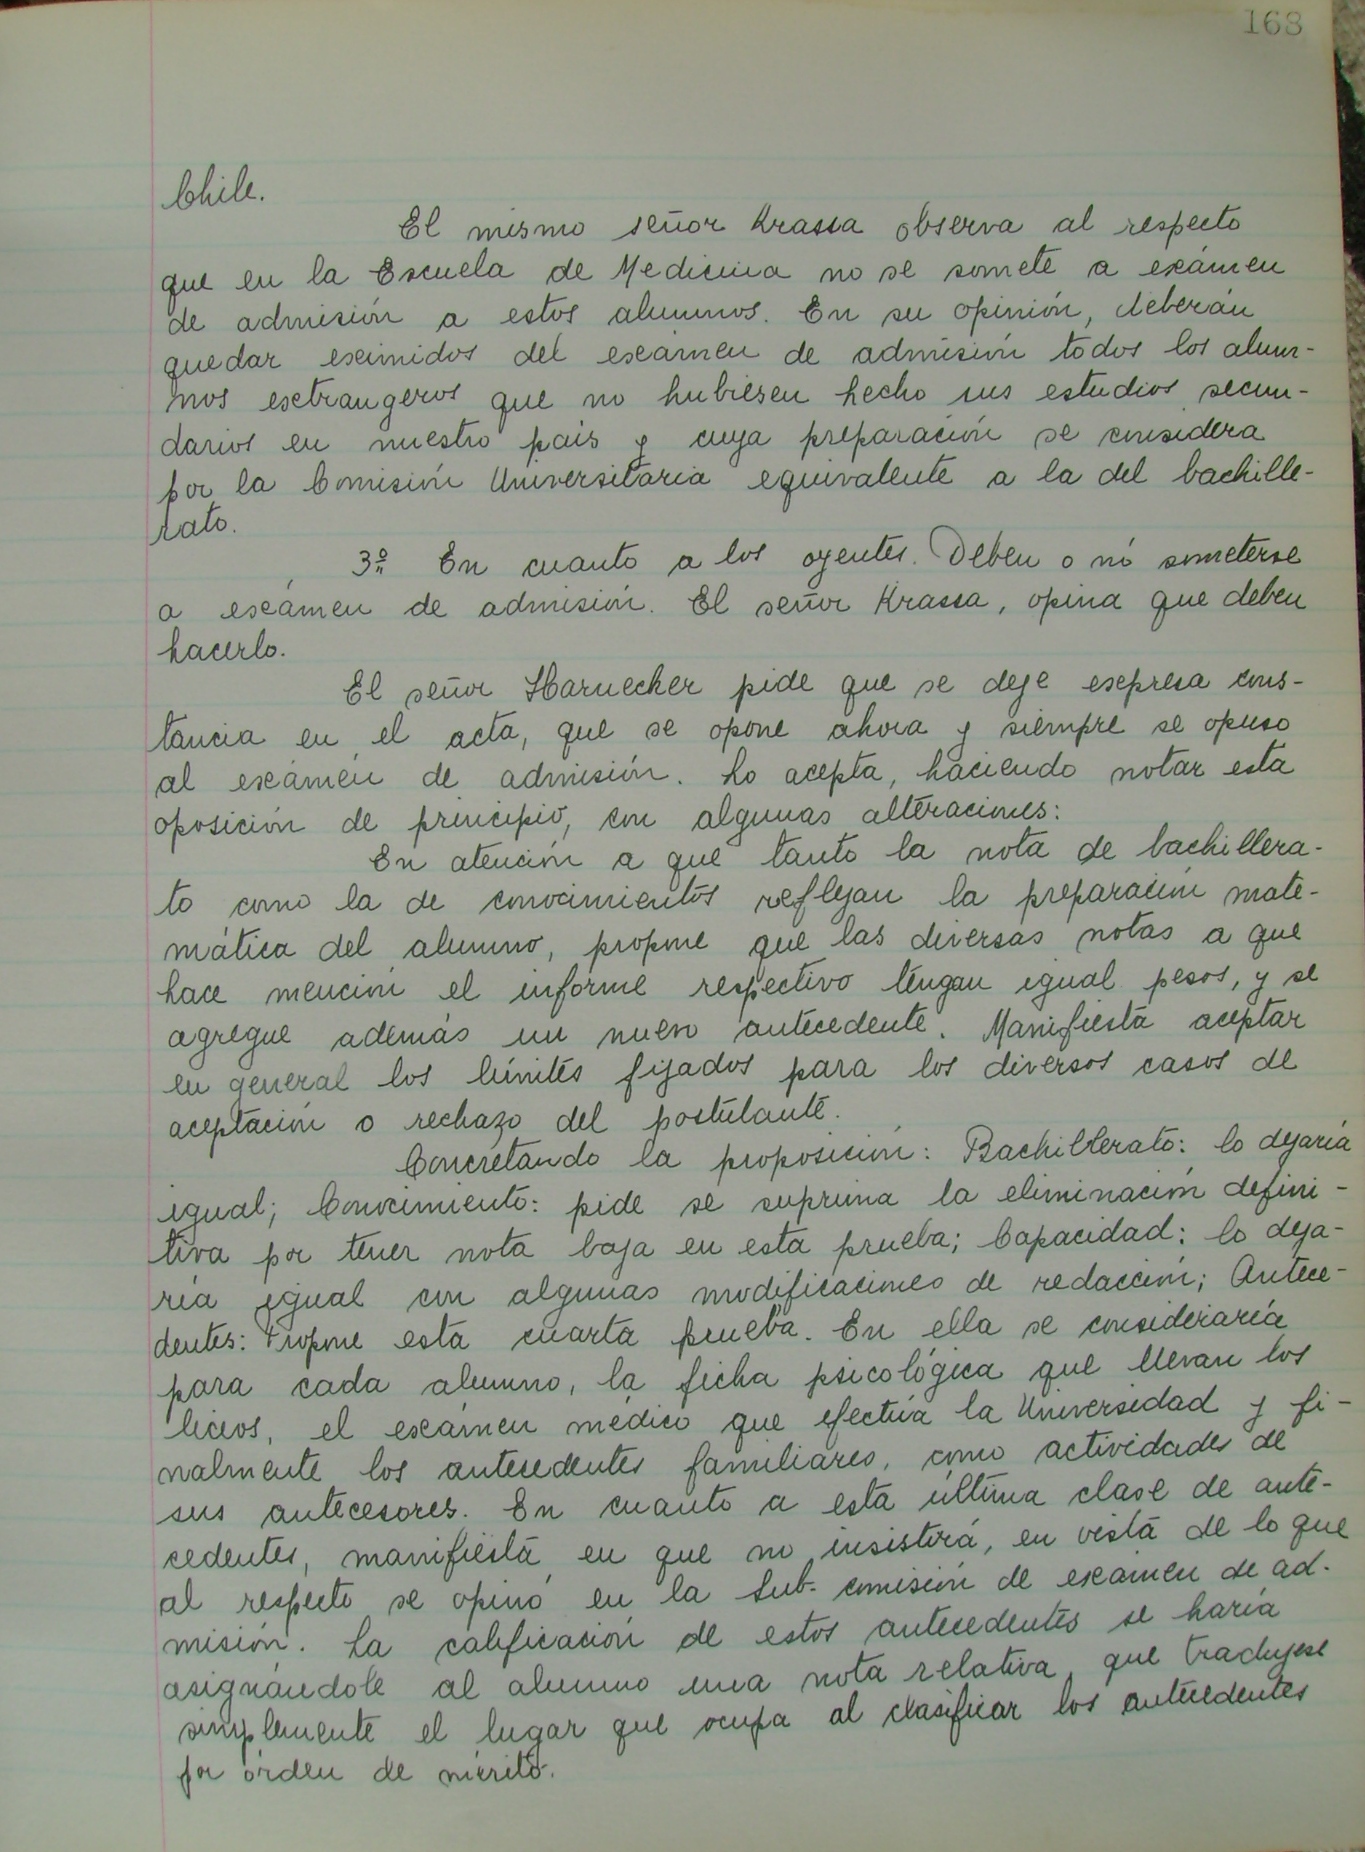 168
Chile.
El mismo señor Krassa observa al respecto
que en la Escuela de Medicina no se somete a exámen
de admisión a estos alumnos. En su opinión, deberán
quedar eximidos del exámen de admisión todos los alum-
nos extrangeros que no hubiesen hecho sus estudios secun-
darios en nuestro país y cuya preparación se considera
por la Comisión Universitaria equivalente a la del bachille-
rato.
3º En cuanto a los oyentes. Deben o nó someterse
a exámen de admisión. El señor Krassa, opina que deben
hacerlo.
El señor Harnecker pide que se deje expresa cons-
tancia en el acta, que se opone ahora y siempre se opuso
al exámen de admisión. Lo acepta, haciendo notar esta
oposición de principio, con algunas alteraciones:
En atención a que tanto la nota de bachillera-
to como la de conocimientos reflejan la preparación mate-
mática del alumno, propone que las diversas notas a que
hace mención el informe respectivo tengan igual pesos, y se
agregue además un nuevo antecedente. Manifiesta aceptar
en general los límites fijados para los diversos casos de
aceptación o rechazo del postulante.
Concretando la proposición: Bachillerato: lo dejaría
igual; Conocimiento: pide se suprima la eliminación defini-
tiva por tener nota baja en esta prueba; Capacidad: lo deja-
ría igual con algunas modificaciones de redacción; Antece-
dentes: Propone esta cuarta prueba. En ella se consideraría
para cada alumno, la ficha psicológica que llevan los
liceos, el exámen médico que efectúa la Universidad y fi-
nalmente los antecedentes familiares, como actividades de
sus antecesores. En cuanto a esta última clase de ante-
cedentes, manifiesta en que no insistirá, en vista de lo que
al respecto se opinó en la Sub-comisión de exámen de ad-
misión. La calificación de estos antecedentes se haría
asignándole al alumno una nota relativa, que tradujese
simplemente el lugar que ocupa al clasificar los antecedentes
por órden de mérito.